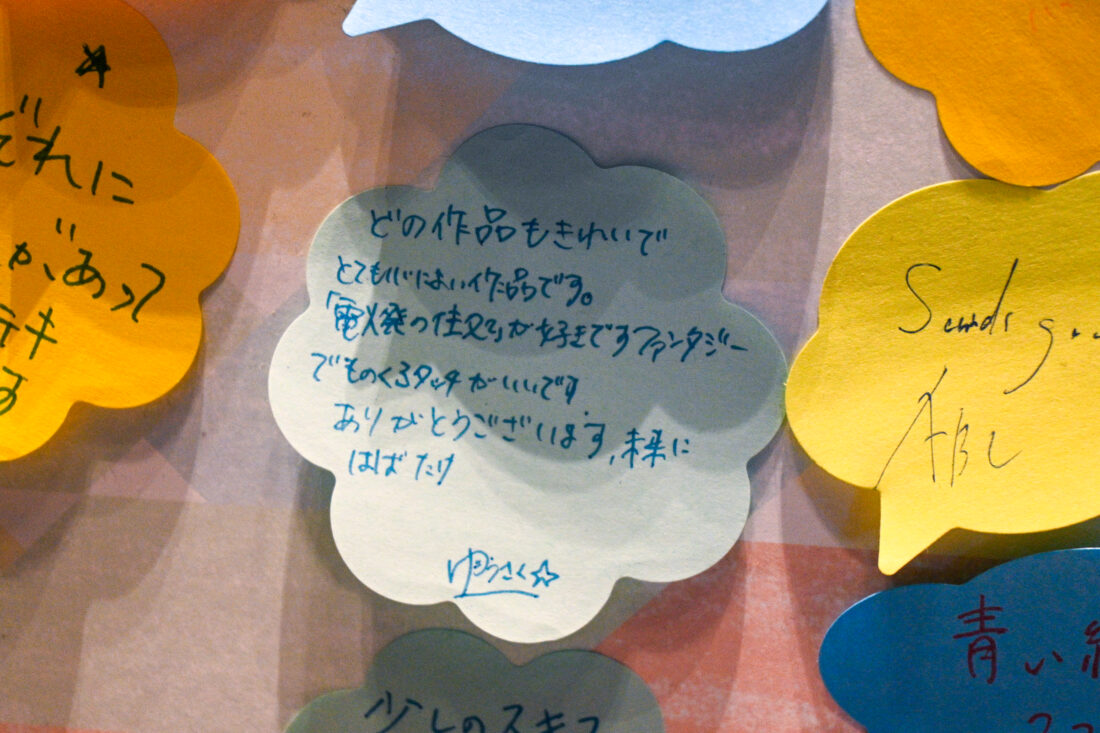 ぞれに
があって
テキ
す
どの作品もきれいで
とても心によい作品です。
「電火発の住処」が好きですファンタジー
でものくるタッチがいいです
ありがとうございます,未来に
はばたけ
ゆうさく☆
Sends
ABC
青い
少しのスキ